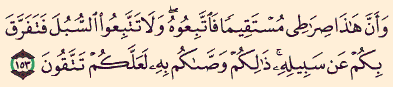 وَأَنَّ هَٰذَا صِرَٰطِى مُسْتَقِيمًا فَٱتَّبِعُوهُ ۖ وَلَا تَتَّبِعُوا۟ ٱلسُّبُلَ فَتَفَرَّقَ
بِكُمْ عَن سَبِيلِهِۦ ۚ ذَٰلِكُمْ وَصَّىٰكُم بِهِۦ لَعَلَّكُمْ تَتَّقُونَ ١٥٣